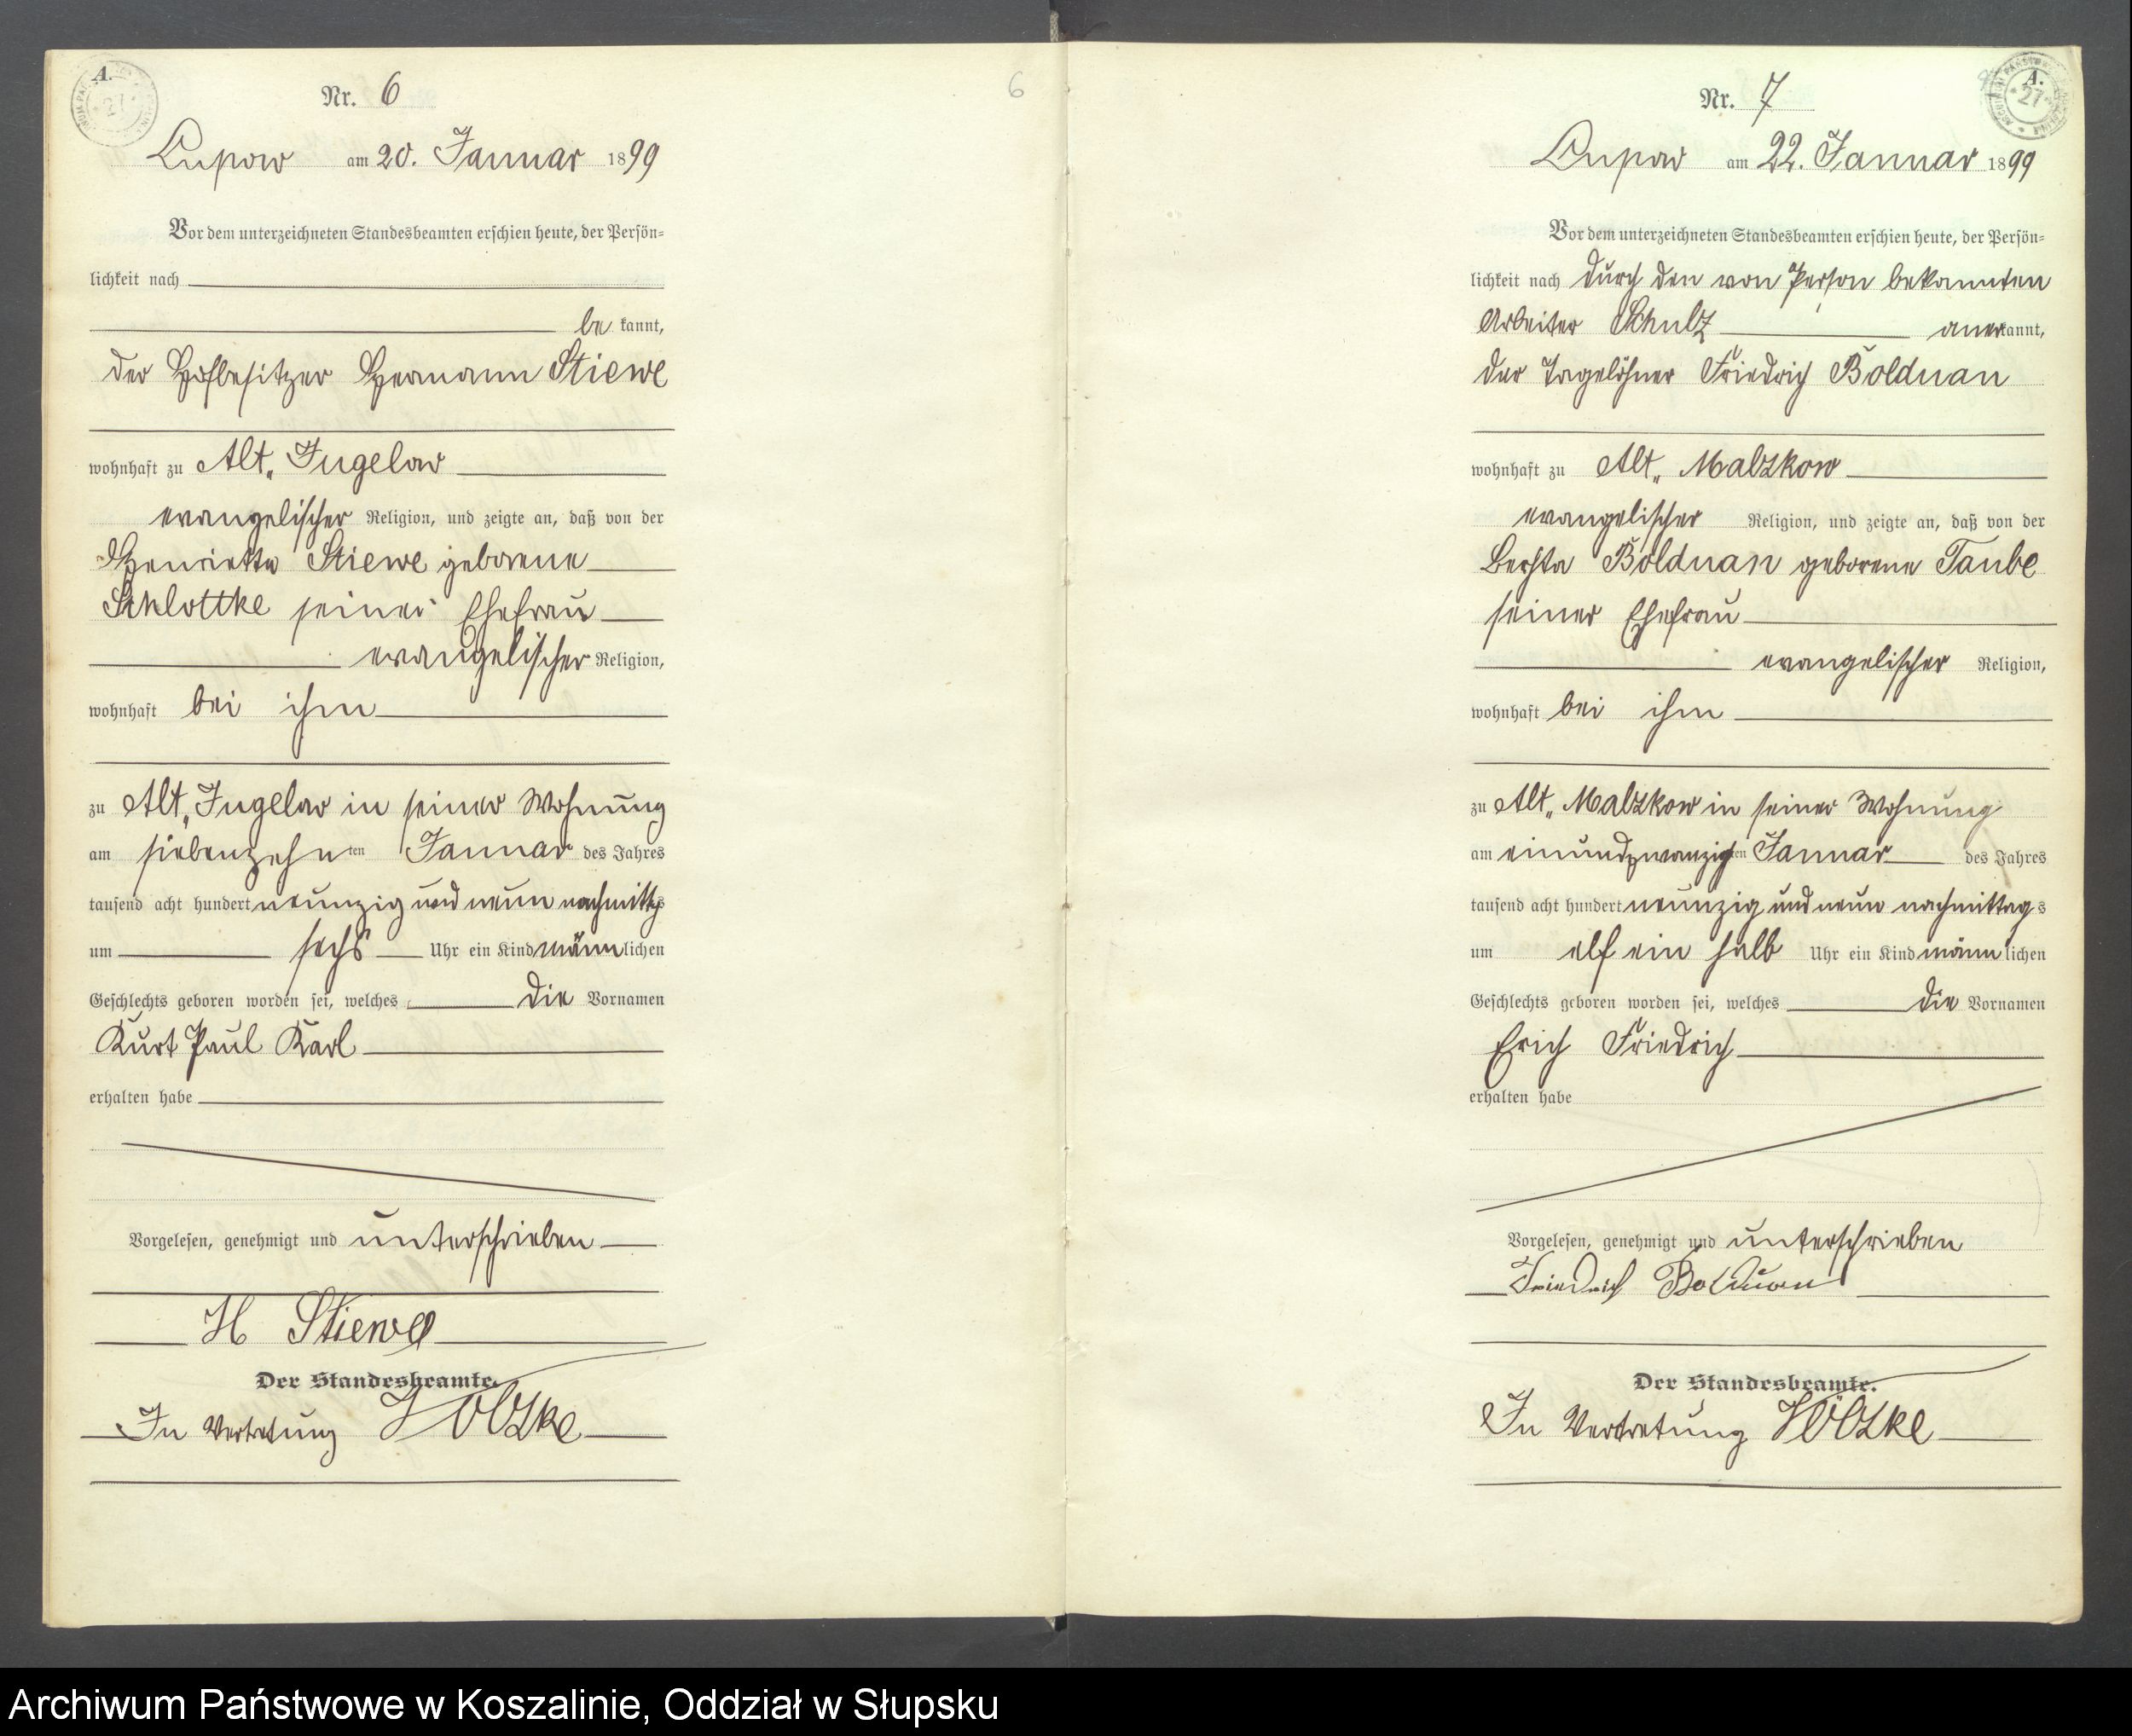 A.
27
Nr. 6
Lupow am 20. Januar 1899
Vor dem unterzeichneten Standesbeamten erschien heute, der Persön=
lichkeit nach
be kannt,
der Hofbesitzer Hermann Stiewe
wohnhaft zu Alt„ Jugelow
evangelischer Religion, und zeigte an, daß von der
Henriette Stiewe geborene
Schlottke seiner Ehefrau
evangelischer Religion,
wohnhaft bei ihm
zu Alt„ Jugelow in seiner Wohnung
am siebenzehn ten Januar des Jahres
tausend acht hundert neunzig und neun nachmittgs
um sechs Uhr ein Kind männlichen
Geschlechts geboren worden sei, welches die Vornamen
Kurt Paul Karl
erhalten habe
Vorgelesen, genehmigt und unterschrieben
H Stiewe
Der Standesbeamte.
In Vertretung Hölzke
6
A.
27
Nr. 7
Lupow am 22. Januar 1899
Vor dem unterzeichneten Standesbeamten erschien heute, der Persön=
lichkeit nach durch den von Person bekannten
Arbeiter Schulz anerkannt,
der Tagelöhner Friedrich Bolduan
wohnhaft zu Alt„ Malzkow
evangelischer Religion, und zeigte an, daß von der
Bertha Bolduan geborene Taube
seiner Ehefrau
evangelischer Religion,
wohnhaft bei ihm
zu Alt„ Malzkow in seiner Wohnung
am einundzwanzigsten Januar des Jahres
tausend acht hundert neunzig und neun nachmittags
um elf ein halb Uhr ein Kind männlichen
Geschlechts geboren worden sei, welches die Vornamen
Erich Friedrich
erhalten habe
Vorgelesen, genehmigt und unterschrieben
Friedrich Bolduan
Der Standesbeamte.
In Vertretung Hölzke
Archiwum Państwowe w Koszalinie, Oddział w Słupsku